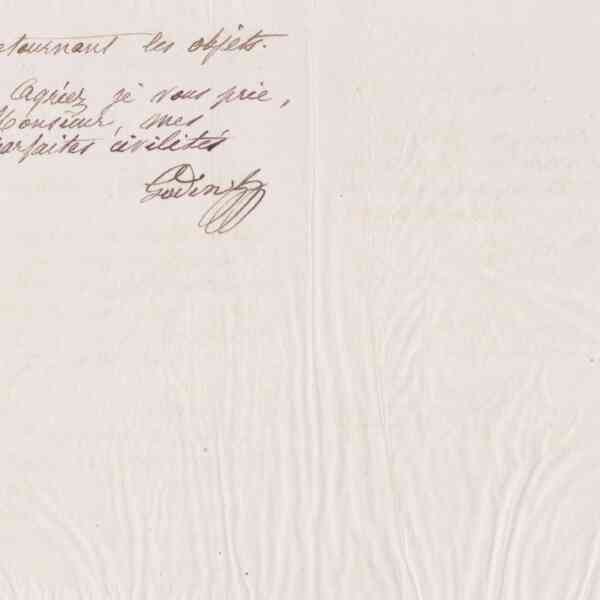 etournant les objets.
Agréez je vous prie,
Monsieur, mes
parfaites civilités
Godin